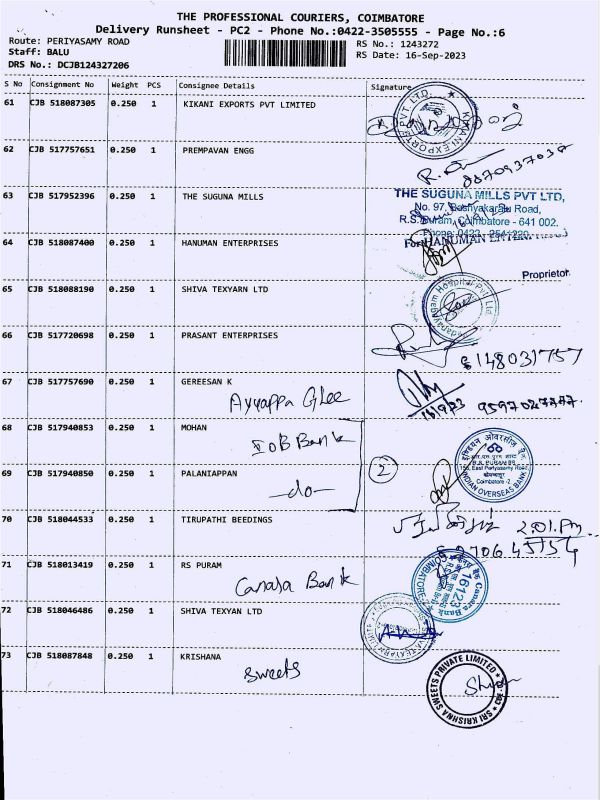 THE PROFESSIONAL COURIERS, COIMBATORE
Delivery Runsheet - PC2 - Phone No.:0422-3505555 - Page No.:6
Route: PERIYASAMY ROAD
Staff: BALU
DRS No.: DCJB124327206
RS No.: 1243272
RS Date: 16-Sep-2023
S No Consignment No Weight PCS Consignee Details Signature
61 CJB 518087305 0.250 1 KIKANI EXPORTS PVT LIMITED
KIKANI EXPORTS PVT. LTD.
62 CJB 517757651 0.250 1 PREMPAVAN ENGG
8870937037
63 CJB 517952396 0.250 1 THE SUGUNA MILLS
THE SUGUNA MILLS PVT LTD,
No. 97, Road,
R.S. Puram, Coimbatore - 641 002.
Phone: 0422
64 CJB 518087400 0.250 1 HANUMAN ENTERPRISES
For HANUMAN
Proprietor
65 CJB 518088190 0.250 1 SHIVA TEXYARN LTD
Hospital Pvt Ltd
66 CJB 517720698 0.250 1 PRASANT ENTERPRISES
8148031757
67 CJB 517757690 0.250 1 GEREESAN K
Ayyappa Glee
16/9/23 9597027777.
68 CJB 517940853 0.250 1 MOHAN
IOB Bank
69 CJB 517940850 0.250 1 PALANIAPPAN
-do-
2
इंडियन ओवरसीज़ बैंक
R.S. PURAM BR.
East Periyasamy Road
Coimbatore -2
INDIAN OVERSEAS BANK
70 CJB 518044533 0.250 1 TIRUPATHI BEEDINGS
2.01.Pm
71 CJB 518013419 0.250 1 RS PURAM
Canara Bank
Canara Bank
16123
COIMBATORE
72 CJB 518046486 0.250 1 SHIVA TEXYAN LTD
73 CJB 518087848 0.250 1 KRISHANA
Sweets
SRI KRISHNA SWEETS PRIVATE LIMITED